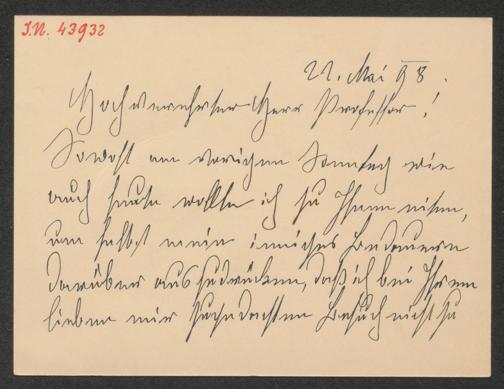 I.N. 43932
22. Mai 98.
Hochverehrter Herr Professor!
Sowohl am vorigen Sonntag wie
auch heute wollte ich zu Ihnen eilen,
um selbst mein inniges Bedauern
darüber auszudrücken, daß ich bei Ihrem
lieben mir zugedachten Besuch nicht zu